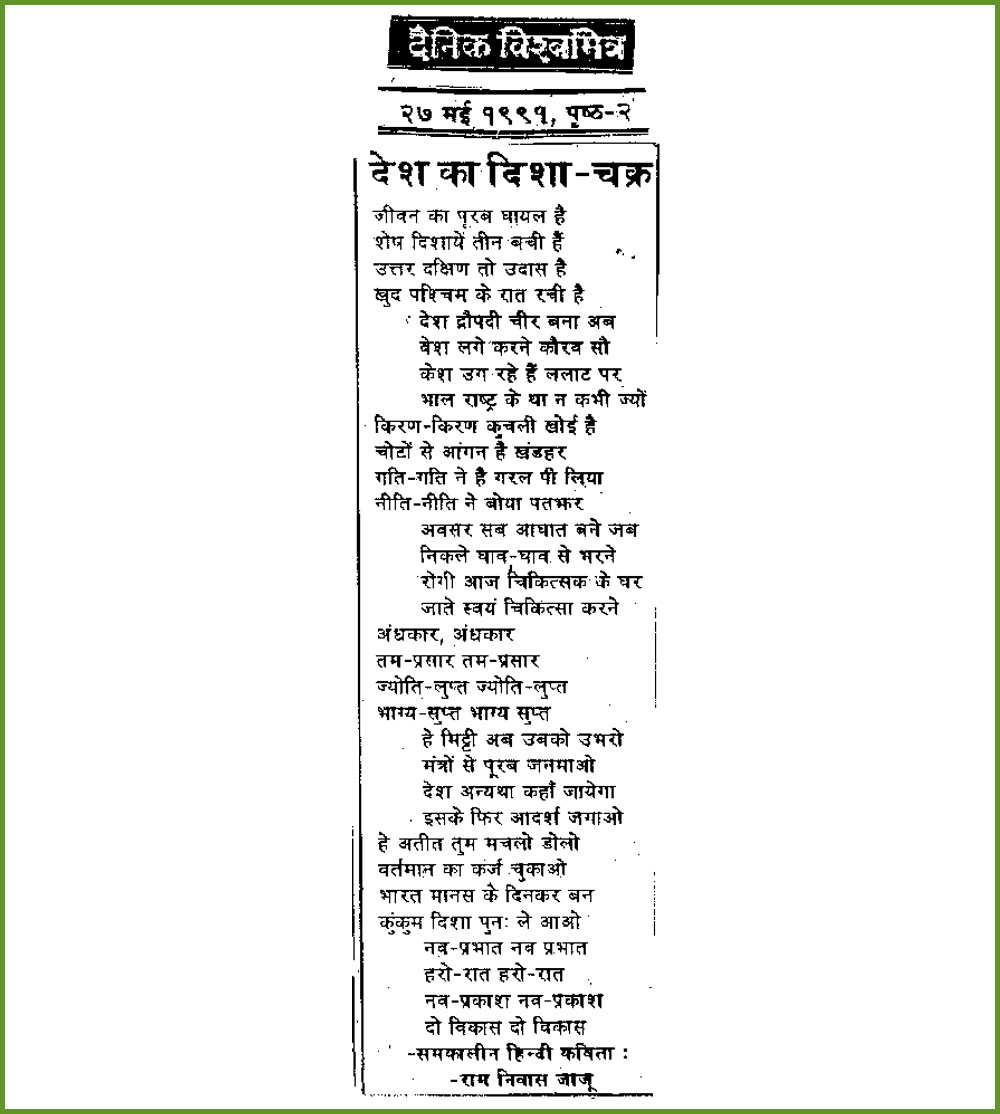 दैनिक विश्वमित्र
२७ मई १९९१, पृष्ठ-२
देश का दिशा-चक्र
जीवन का पूरब घायल है
शेष दिशायें तीन बची हैं
उत्तर दक्षिण तो उदास है
खुद पश्चिम के रात रची है
देश द्रौपदी चीर बना अब
बेश लगे करने कौरव सौ
केश उग रहे हैं ललाट पर
भाल राष्ट्र के था न कभी ज्यों
किरण-किरण कुचली खोई है
चोटों से आंगन है खंडहर
गति-गति ने है गरल पी लिया
नीति-नीति ने बोया पतझर
अवसर सब आघात बने जब
निकले घाव-घाव से भरने
रोगी आज चिकित्सक के घर
जाते स्वयं चिकित्सा करने
अंधकार, अंधकार
तम-प्रसार तम-प्रसार
ज्योति-लुप्त ज्योति-लुप्त
भाग्य-सुप्त भाग्य सुप्त
हे मिट्टी अब उबको उभरो
मंत्रों से पूरब जनमाओ
देश अन्यथा कहाँ जायेगा
इसके फिर आदर्श जगाओ
हे अतीत तुम मचलो डोलो
वर्तमान का कर्ज चुकाओ
भारत मानस के दिनकर बन
कुंकुम दिशा पुनः ले आओ
नव-प्रभात नव प्रभात
हरो-रात हरो-रात
नव-प्रकाश नव-प्रकाश
दो विकास दो विकास
-समकालीन हिन्दी कविता :
-राम निवास जाजू